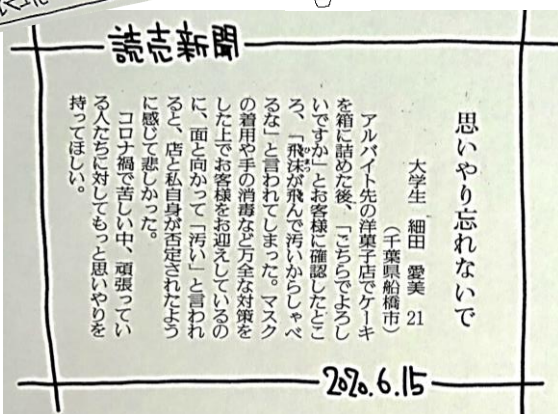 読売新聞
思いやり忘れないで
大学生 細田 愛美 21
(千葉県船橋市)
アルバイト先の洋菓子店でケーキ
を箱に詰めた後、「こちらでよろし
いですか」とお客様に確認したとこ
ろ、「飛沫が飛んで汚いからしゃべ
るな」と言われてしまった。マスク
の着用や手の消毒など万全な対策を
した上でお客様をお迎えしているの
に、面と向かって「汚い」と言われ
ると、店と私自身が否定されたよう
に感じて悲しかった。
コロナ禍で苦しい中、頑張ってい
る人たちに対してもっと思いやりを
持ってほしい。
2020.6.15